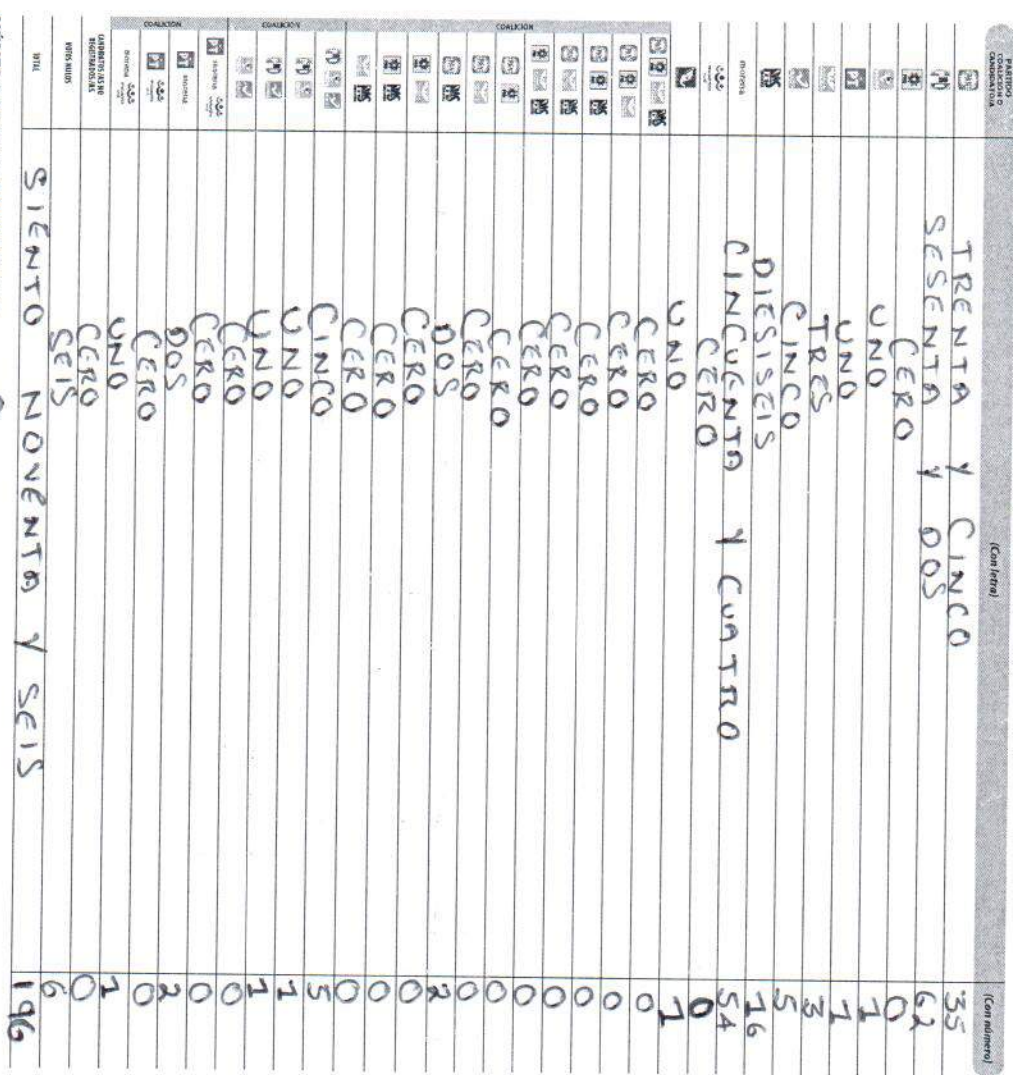 PARTIDO COALICIÓN O CANDIDATURA (Con letra) (Con número)
PAN TREINTA Y CINCO 35
PRI SESENTA Y DOS 62
PRD CERO 0
UNO 1
PT UNO 1
TRES 3
CINCO 5
MAS DIESISEIS 16
morena CINCUENTA Y CUATRO 54
CERO 0
UNO 1
COALICIÓN
CERO 0
CERO 0
CERO 0
CERO 0
CERO 0
CERO 0
CERO 0
DOS 2
CERO 0
CERO 0
CERO 0
COALICIÓN
CINCO 5
UNO 1
UNO 1
CERO 0
COALICIÓN
PT morena CERO 0
PT morena DOS 2
PT CERO 0
morena UNO 1
CANDIDATOS/AS NO REGISTRADOS/AS CERO 0
VOTOS NULOS SEIS 6
TOTAL SIENTO NOVENTA Y SEIS 196